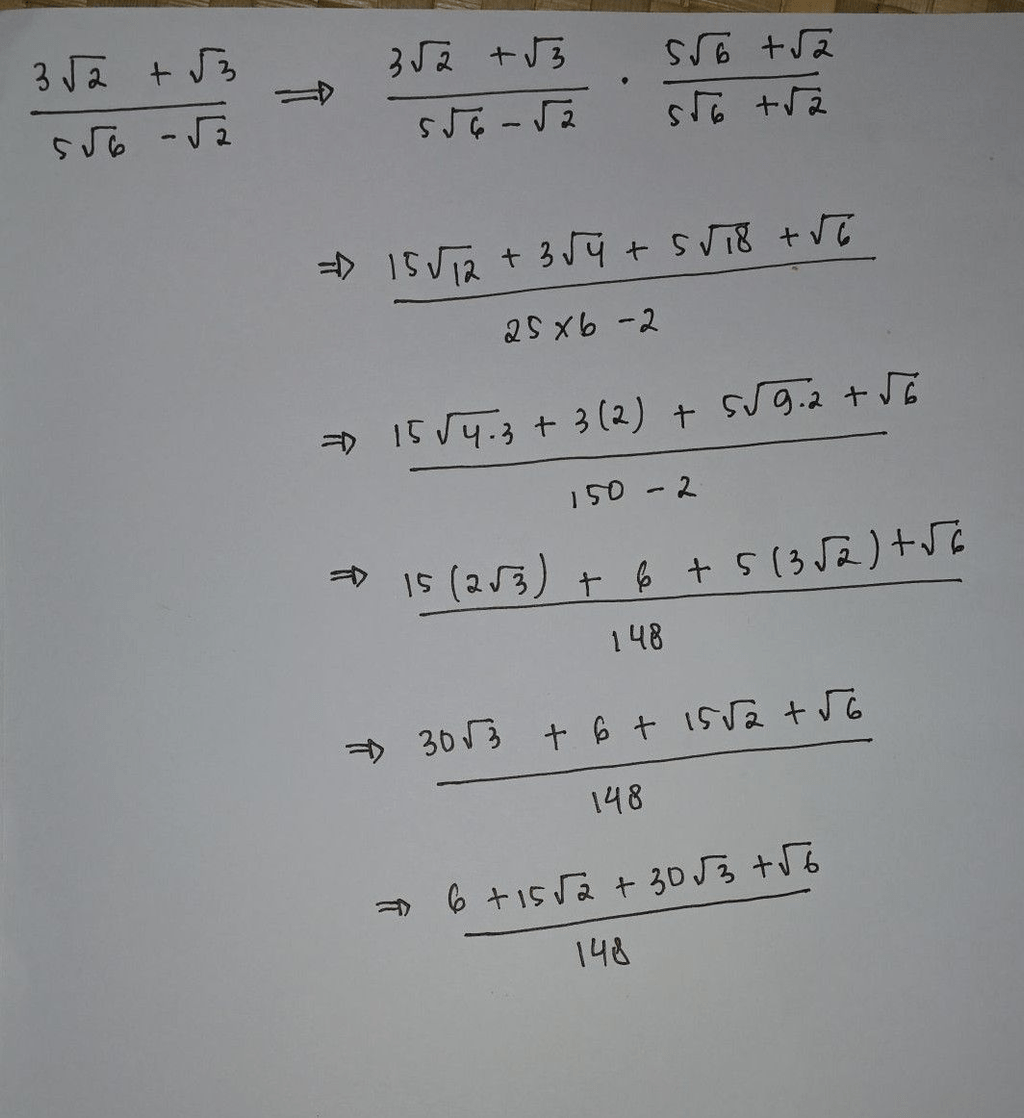 (3√2 + √3)/(5√6 - √2) ⇒ (3√2 + √3)/(5√6 - √2) . (5√6 + √2)/(5√6 + √2)
⇒ (15√12 + 3√4 + 5√18 + √6)/(25 x 6 - 2)
⇒ (15√4.3 + 3(2) + 5√9.2 + √6)/(150 - 2)
⇒ (15(2√3) + 6 + 5(3√2) + √6)/148
⇒ (30√3 + 6 + 15√2 + √6)/148
⇒ (6 + 15√2 + 30√3 + √6)/148